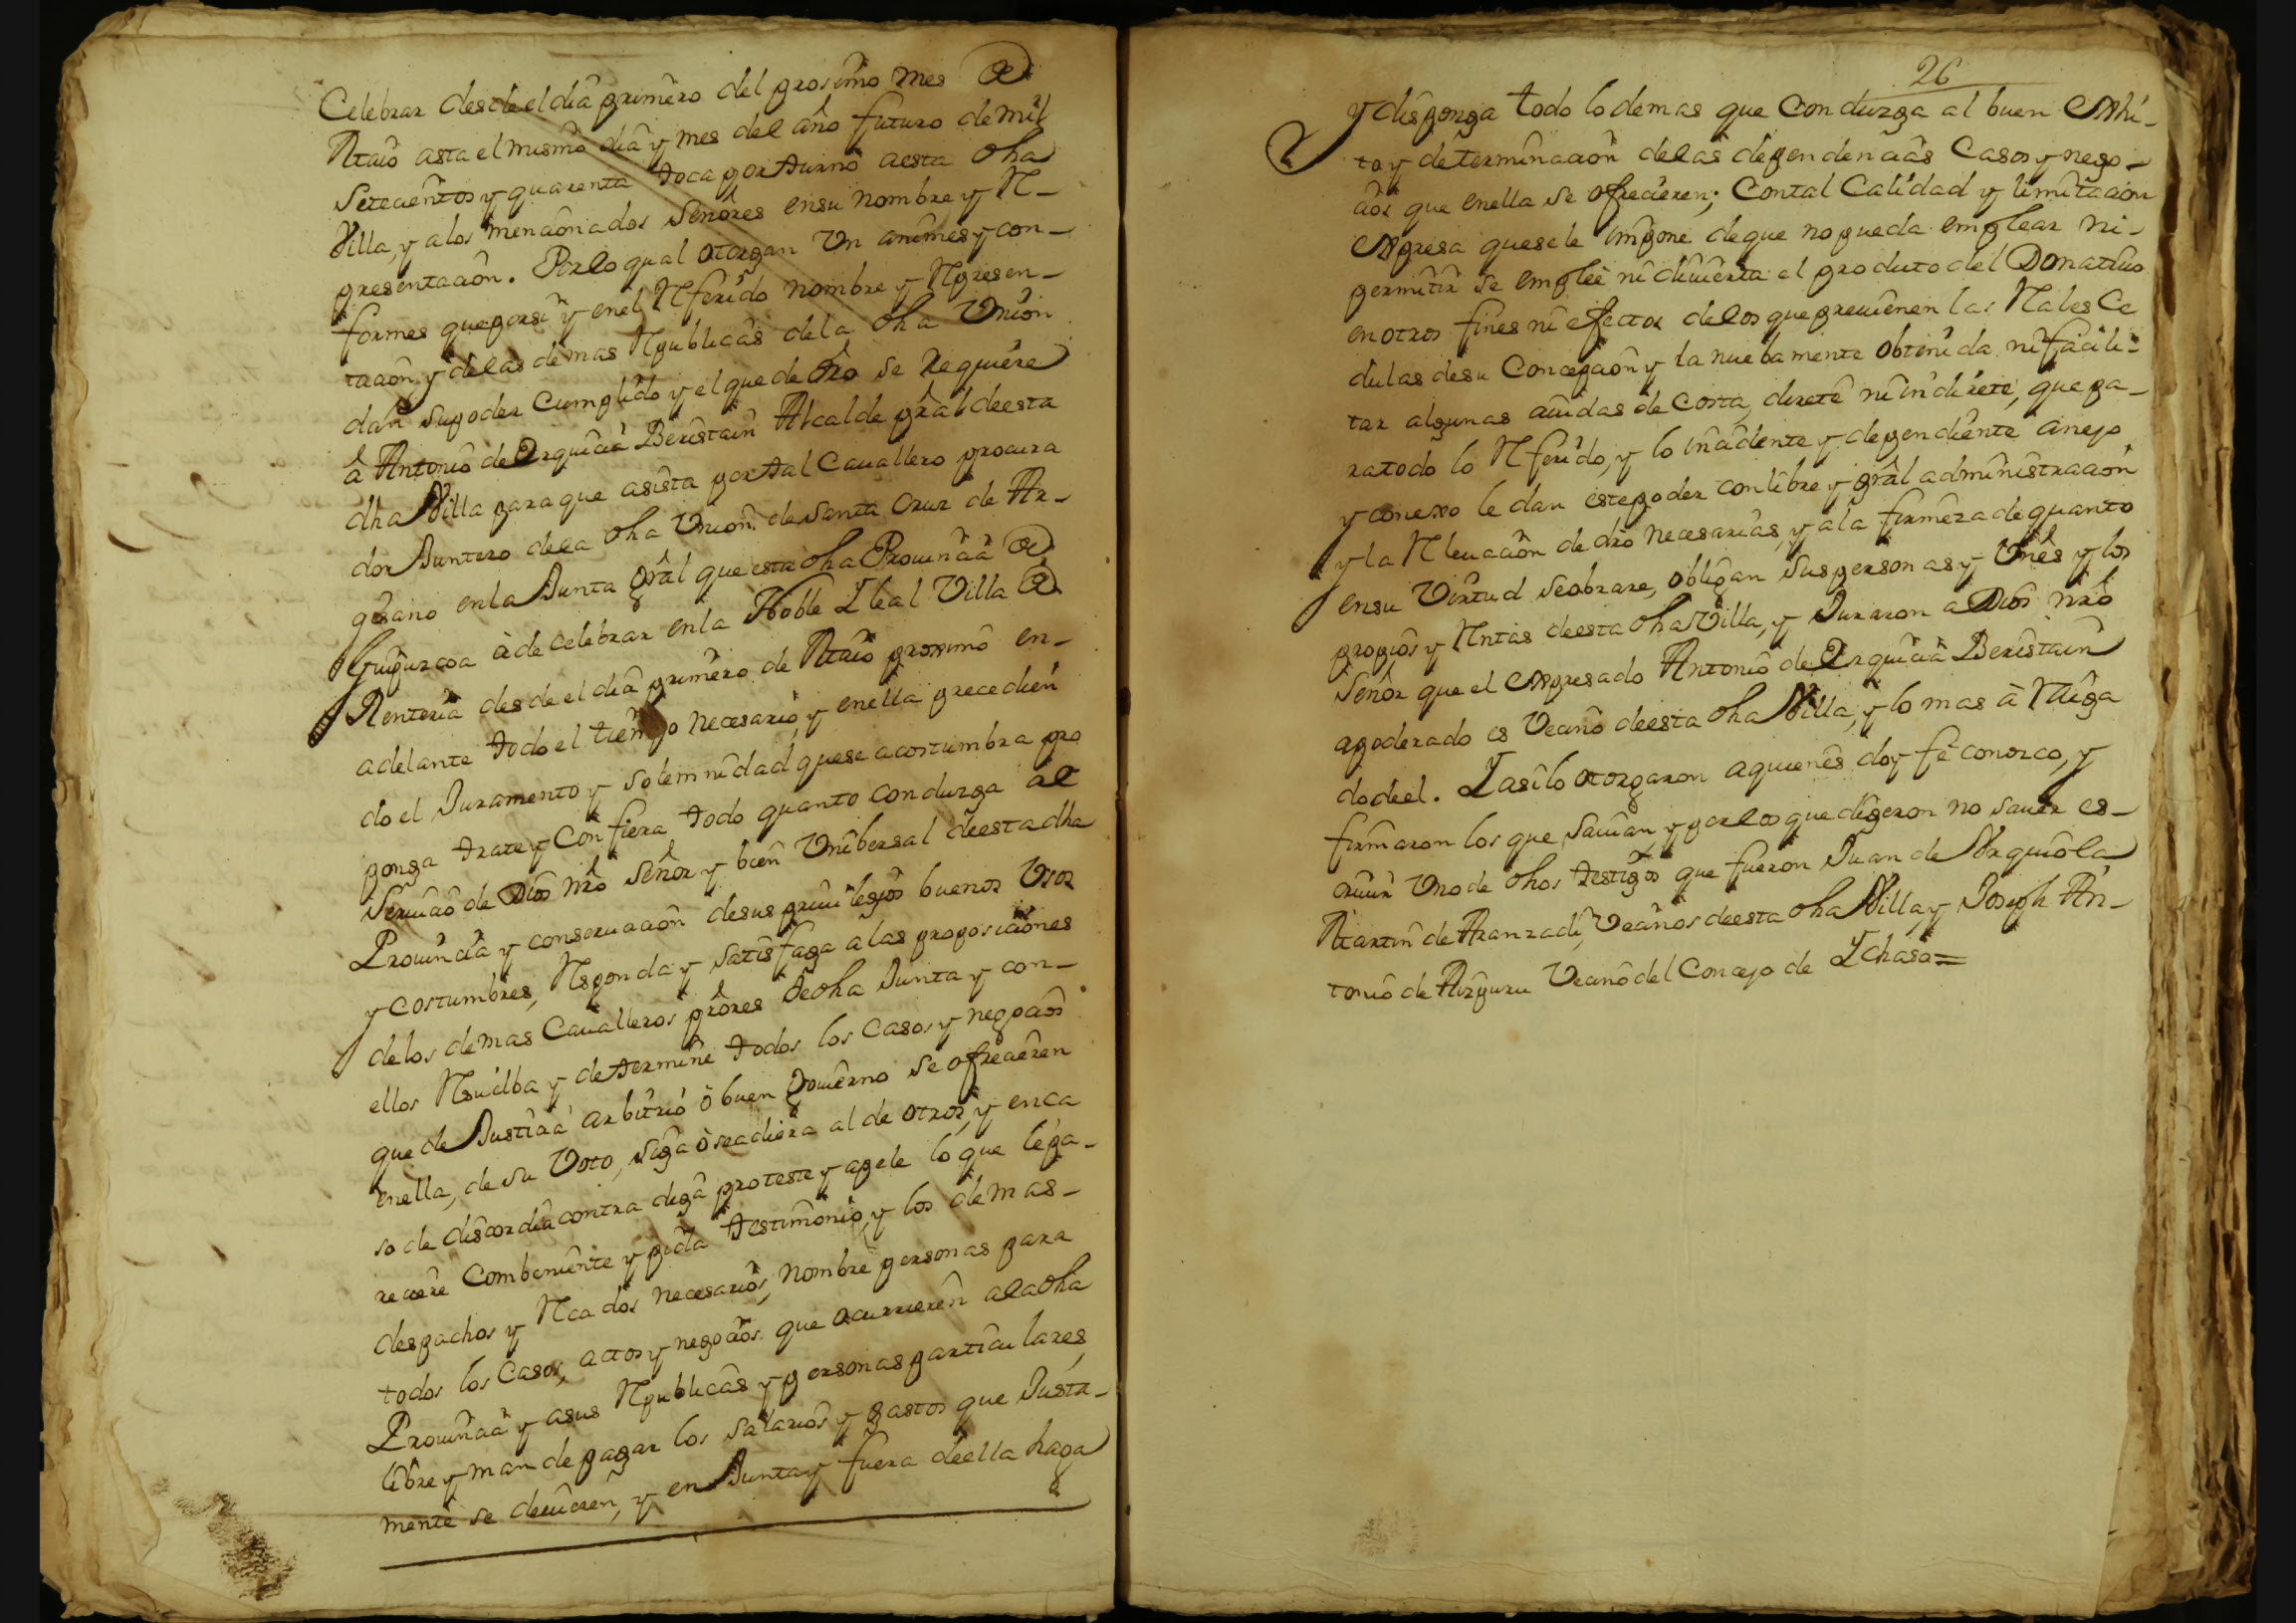 Celebrar desde el dia primero del prosimo mes de
Maio asta el mismo dia y mes del año futuro de mil
Setecientos y quarenta toca por turno aesta dha
Villa, y alos mencionados Señores ensu nombre y Re-
presentacion. Porlo qual otorgan Un animes y con-
formes que porsi y enel Referido nombre y Represen-
tacion y delas demas Republicas dela dha Union
dan supoder Cumplido y el que de dro se Requiere
â Antonio de Orquicia Beristain Alcalde pral deesta
dha Villa para que asista por tal Cauallero procura
dor Juntero dela dha Union de Santa Cruz de Ar-
gisano enla Junta Gral que esta dha Prouincia de
Guipuzcoa à de celebrar enla Noble Y leal Villa de
Renteria desde el dia primero de Maio proximo en-
adelante todo el tiempo necesario, y enella precedien
do el Juramento y solemnidad quese acostumbra pro
ponga trate y Confiera todo quanto conduzga al
Seruicio de Dios nro Señor y bien Unibersal deesta dha
Prouincia y conseruacion desus priuilegios buenos Usos
y costumbres, Responda y satisfaga alas proposiciones
delos demas Caualleros prôres de dha Junta y con-
ellos Resuelba y determine todos los Casos y negocios
que de Justicia arbitrio ô buen Gouierno se ofrecieren
enella, de su Voto, siga ò se adiera al de otros, y enca
so de discordia contra diga proteste y apele lo que lepa-
reciere Combeniente y pida testimonio, y los demas-
despachos y Rcados necesarios, nombre personas para
todos los Casos, actos y negocios que ocurrieren ala dha
Prouincia y asus Republicas y personas particulares,
libre y man de pagar los salarios y gastos que Justa-
mente se deuieren, y en Junta y fuera deella haga
26
y disponga todo lo demas que Conduzga al buen exhi-
to y determinacion delas dependencias Casos y nego-
cios que enella se ofrecieren; Contal Calidad y limitacion
expresa quesele impone deque no pueda emplear ni-
permitir se emplee ni diuierta el produto del Donatiuo
en otros fines ni efectos delos que preuienen las Rales Ce
dulas desu Concepcion y la nuebamente obtenida ni facili-
tar algunas aiudas de Costa, direte ni indirete, que pa-
ratodo lo Referido, y lo incidente y dependiente anejo
y conexo le dan estepoder con libre y gral administracion
y la Releuacion de dro necesarias, y ala firmeza de quanto
ensu Virtud seobrare, obligan suspersonas y Vnes y los
propios y Rentas deesta dha Villa, y Juraron a Dios nro
Señor que el expresado Antonio de Orquicia Beristain
apoderado es Vecino deesta dha Villa, y lo mas à Raiga
do deel. Y asilo otorgaron aquienes doy fè conozco, y
firmaron los que sauian y porlos que digeron no sauer es-
criuir Uno de dhos testigos que fueron Juan de Arquiola
Martin de Aranzadi, Vecinos deesta dha Villa, y Joseph An-
tonio de Aizpuru Vecino del Concejo de Ychaso =